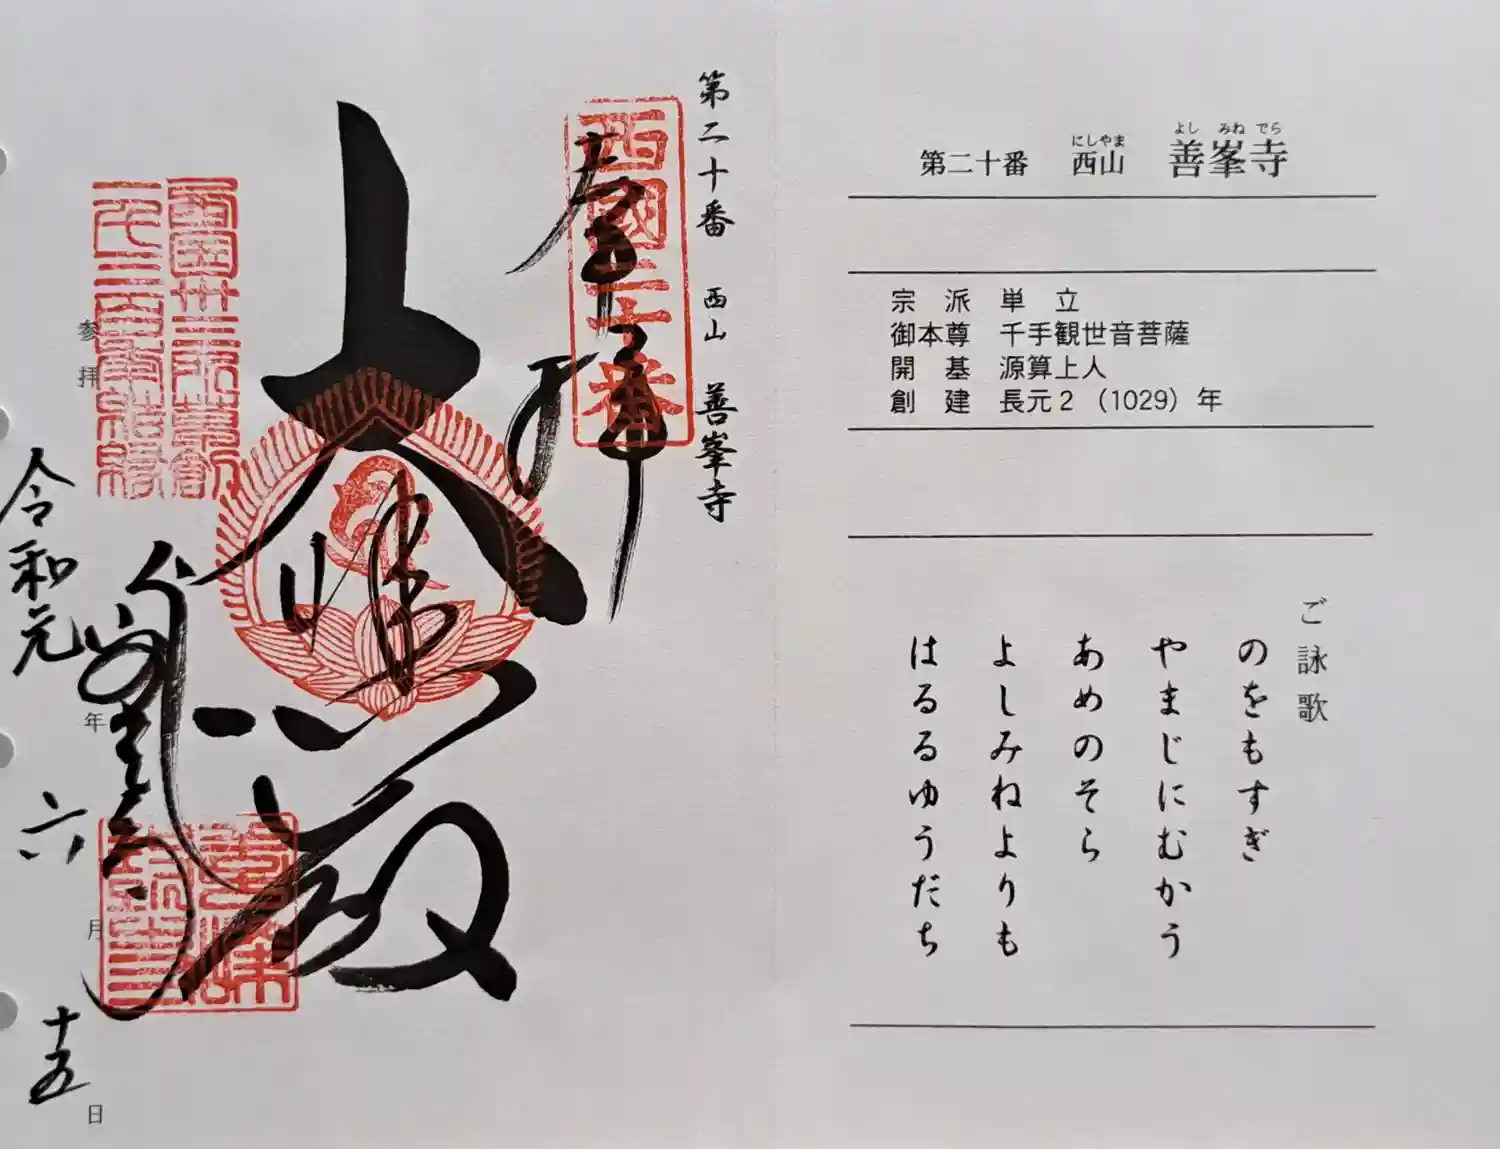 第二十番 西山 善峯寺
西國二十番
奉拝
大悲殿
善峯寺
西国三十三所草創
一千三百年記念
参拝
令和元年
六月
十五日
にしやま よしみねでら
第二十番 西山 善峯寺
宗派 単立
御本尊 千手観世音菩薩
開基 源算上人
創建 長元2(1029)年
ご詠歌
のをもすぎ
やまじにむかう
あめのそら
よしみねよりも
はるるゆうだち